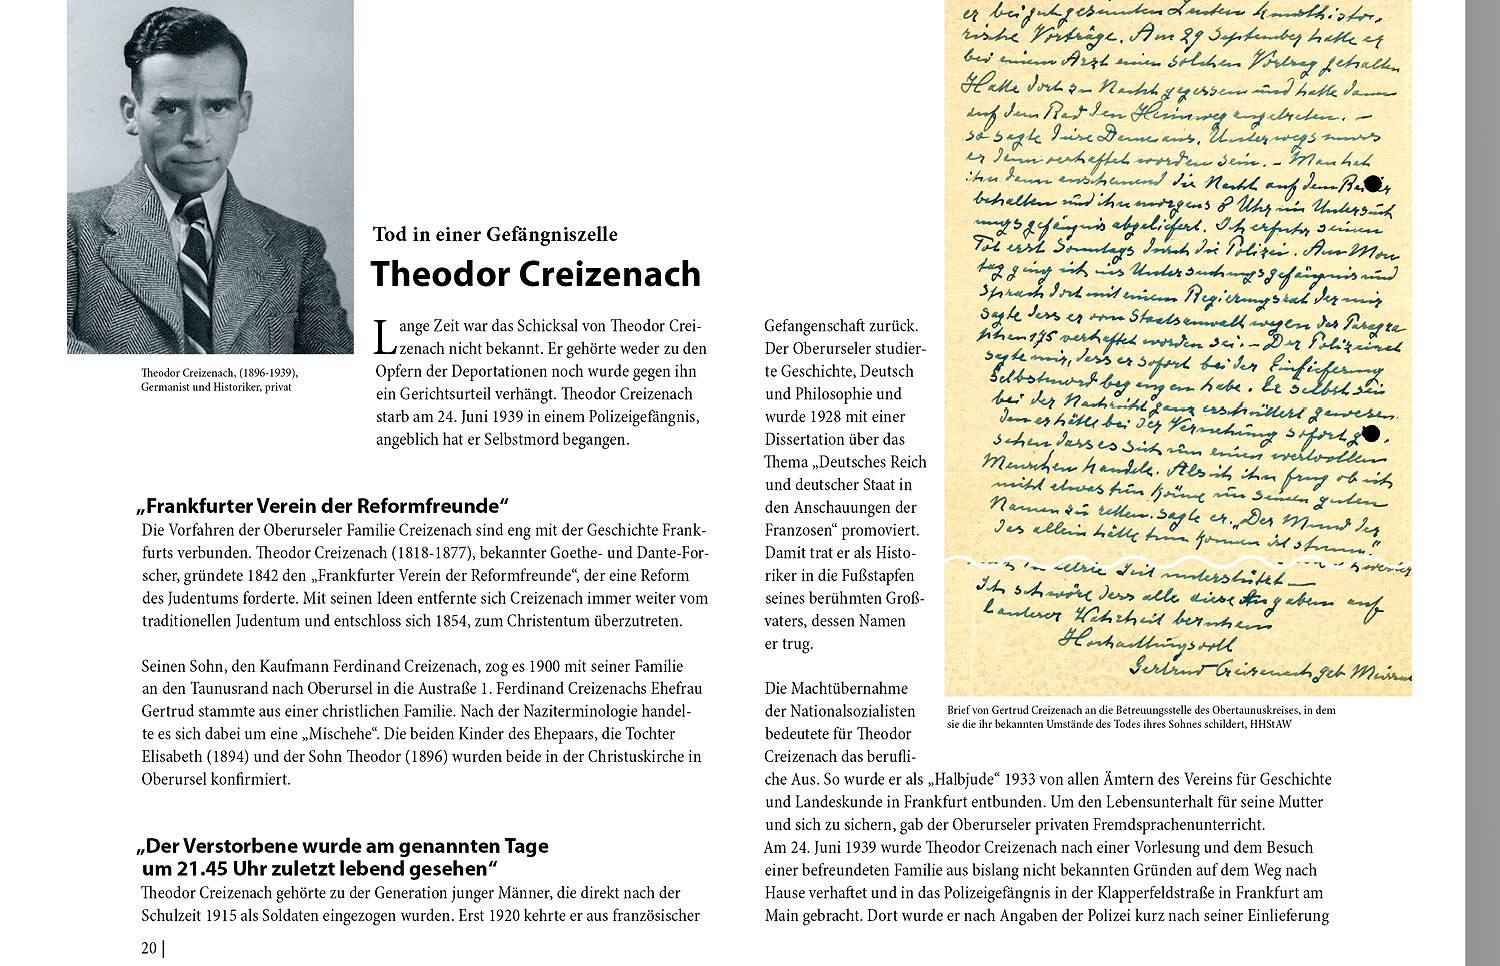 Theodor Creizenach, (1896-1939),
Germanist und Historiker, privat
Tod in einer Gefängniszelle
Theodor Creizenach
Lange Zeit war das Schicksal von Theodor Crei-
zenach nicht bekannt. Er gehörte weder zu den
Opfern der Deportationen noch wurde gegen ihn
ein Gerichtsurteil verhängt. Theodor Creizenach
starb am 24. Juni 1939 in einem Polizeigefängnis,
angeblich hat er Selbstmord begangen.
„Frankfurter Verein der Reformfreunde“
Die Vorfahren der Oberurseler Familie Creizenach sind eng mit der Geschichte Frank-
furts verbunden. Theodor Creizenach (1818-1877), bekannter Goethe- und Dante-For-
scher, gründete 1842 den „Frankfurter Verein der Reformfreunde“, der eine Reform
des Judentums forderte. Mit seinen Ideen entfernte sich Creizenach immer weiter vom
traditionellen Judentum und entschloss sich 1854, zum Christentum überzutreten.
Seinen Sohn, den Kaufmann Ferdinand Creizenach, zog es 1900 mit seiner Familie
an den Taunusrand nach Oberursel in die Austraße 1. Ferdinand Creizenachs Ehefrau
Gertrud stammte aus einer christlichen Familie. Nach der Naziterminologie handel-
te es sich dabei um eine „Mischehe“. Die beiden Kinder des Ehepaars, die Tochter
Elisabeth (1894) und der Sohn Theodor (1896) wurden beide in der Christuskirche in
Oberursel konfirmiert.
„Der Verstorbene wurde am genannten Tage
um 21.45 Uhr zuletzt lebend gesehen“
Theodor Creizenach gehörte zu der Generation junger Männer, die direkt nach der
Schulzeit 1915 als Soldaten eingezogen wurden. Erst 1920 kehrte er aus französischer
20 |
Gefangenschaft zurück.
Der Oberurseler studier-
te Geschichte, Deutsch
und Philosophie und
wurde 1928 mit einer
Dissertation über das
Thema „Deutsches Reich
und deutscher Staat in
den Anschauungen der
Franzosen“ promoviert.
Damit trat er als Histo-
riker in die Fußstapfen
seines berühmten Groß-
vaters, dessen Namen
er trug.
Die Machtübernahme
der Nationalsozialisten
bedeutete für Theodor
Creizenach das berufli-
che Aus. So wurde er als „Halbjude“ 1933 von allen Ämtern des Vereins für Geschichte
und Landeskunde in Frankfurt entbunden. Um den Lebensunterhalt für seine Mutter
und sich zu sichern, gab der Oberurseler privaten Fremdsprachenunterricht.
Am 24. Juni 1939 wurde Theodor Creizenach nach einer Vorlesung und dem Besuch
einer befreundeten Familie aus bislang nicht bekannten Gründen auf dem Weg nach
Hause verhaftet und in das Polizeigefängnis in der Klapperfeldstraße in Frankfurt am
Main gebracht. Dort wurde er nach Angaben der Polizei kurz nach seiner Einlieferung
er bei gut gesinnten Leuten kunsthisto-
rische Vorträge. Am 29 September hatte er
bei einem Arzt einen solchen Vortrag gehalten
Hatte dort zu Nacht gegessen und hatte dann
auf dem Rad den Heimweg angetreten. –
so sagte diese Dame aus. Unterwegs muss
er dann verhaftet worden sein. – Man hat
ihn dann anscheinend die Nacht auf dem
behalten und ihn morgens 8 Uhr im Untersuch
ungsgefängnis abgeliefert. Ich erfuhr seinen
Tod erst Sonntags durch die Polizei. Am Mon
tag ging ich ins Untersuchungsgefängnis und
sprach dort mit einem Regierungsrat der mir
sagte dass er vom Staatsanwalt wegen des Paragra
phen 175 verhaftet worden sei. – Der Polizeirat
sagte mir, dass er sofort bei der Einlieferung
Selbstmord begangen habe. Er selbst sei
bei der Nachricht ganz erschüttert gewesen.
denn er hätte bei der Vernehmung sofort
sehen dass es sich um einen wertvollen
Menschen handele. Als ich ihn frug ob ich
nicht etwas tun könne um seinen guten
Namen zu retten. sagte er. „Der Mund der
das allein hätte tun können ist stumm.“
Zeit unterstützt –
Ich schwöre dass alle diese Angaben auf
lauterer Wahrheit beruhen
Hochachtungsvoll
Gertrud Creizenach geb
Brief von Gertrud Creizenach an die Betreuungsstelle des Obertaunuskreises, in dem
sie die ihr bekannten Umstände des Todes ihres Sohnes schildert, HHStAW